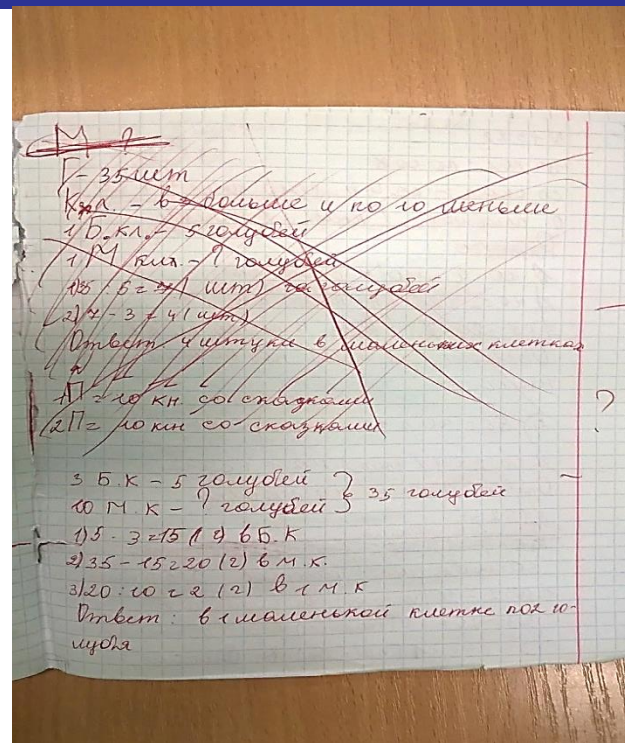 М ?
Г - 35 шт
Кл. - в больше и по 10 меньше
1 Б. кл. - 5 голубей
1 М кл. - ? голубей
1) 35 : 5 = 7 ( шт) голубей
2) 7 - 3 = 4 ( шт)
Ответ: 4 штуки в маленьких клетках
1П = 10 кн. со сказками
2П = 10 кн со сказками
?
3 Б. К - 5 голубей
10 М. К - ? голубей } 35 голубей
1) 5 · 3 = 15 (г) в Б. К
2) 35 - 15 = 20 (г) в М. К.
3) 20 : 10 = 2 (г) в 1 М. К
Ответ: в 1 маленькой клетке по 2 го-
лубя